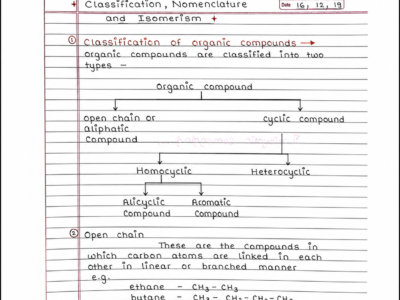 + Classification, Nomenclature
Date 16, 12, 19
and Isomerism +
① Classification of organic compounds →
organic compounds are classified into two
types –
Organic compound
open chain or
aliphatic
compound
cyclic compound
Homocyclic
Heterocyclic
Alicyclic
Compound
Aromatic
Compound
② Open chain
These are the compounds in
which carbon atoms are linked in each
other in linear or branched manner
e.g.
ethane – CH₃ – CH₃
butane – CH₃ – CH₂ – CH₂ – CH₃